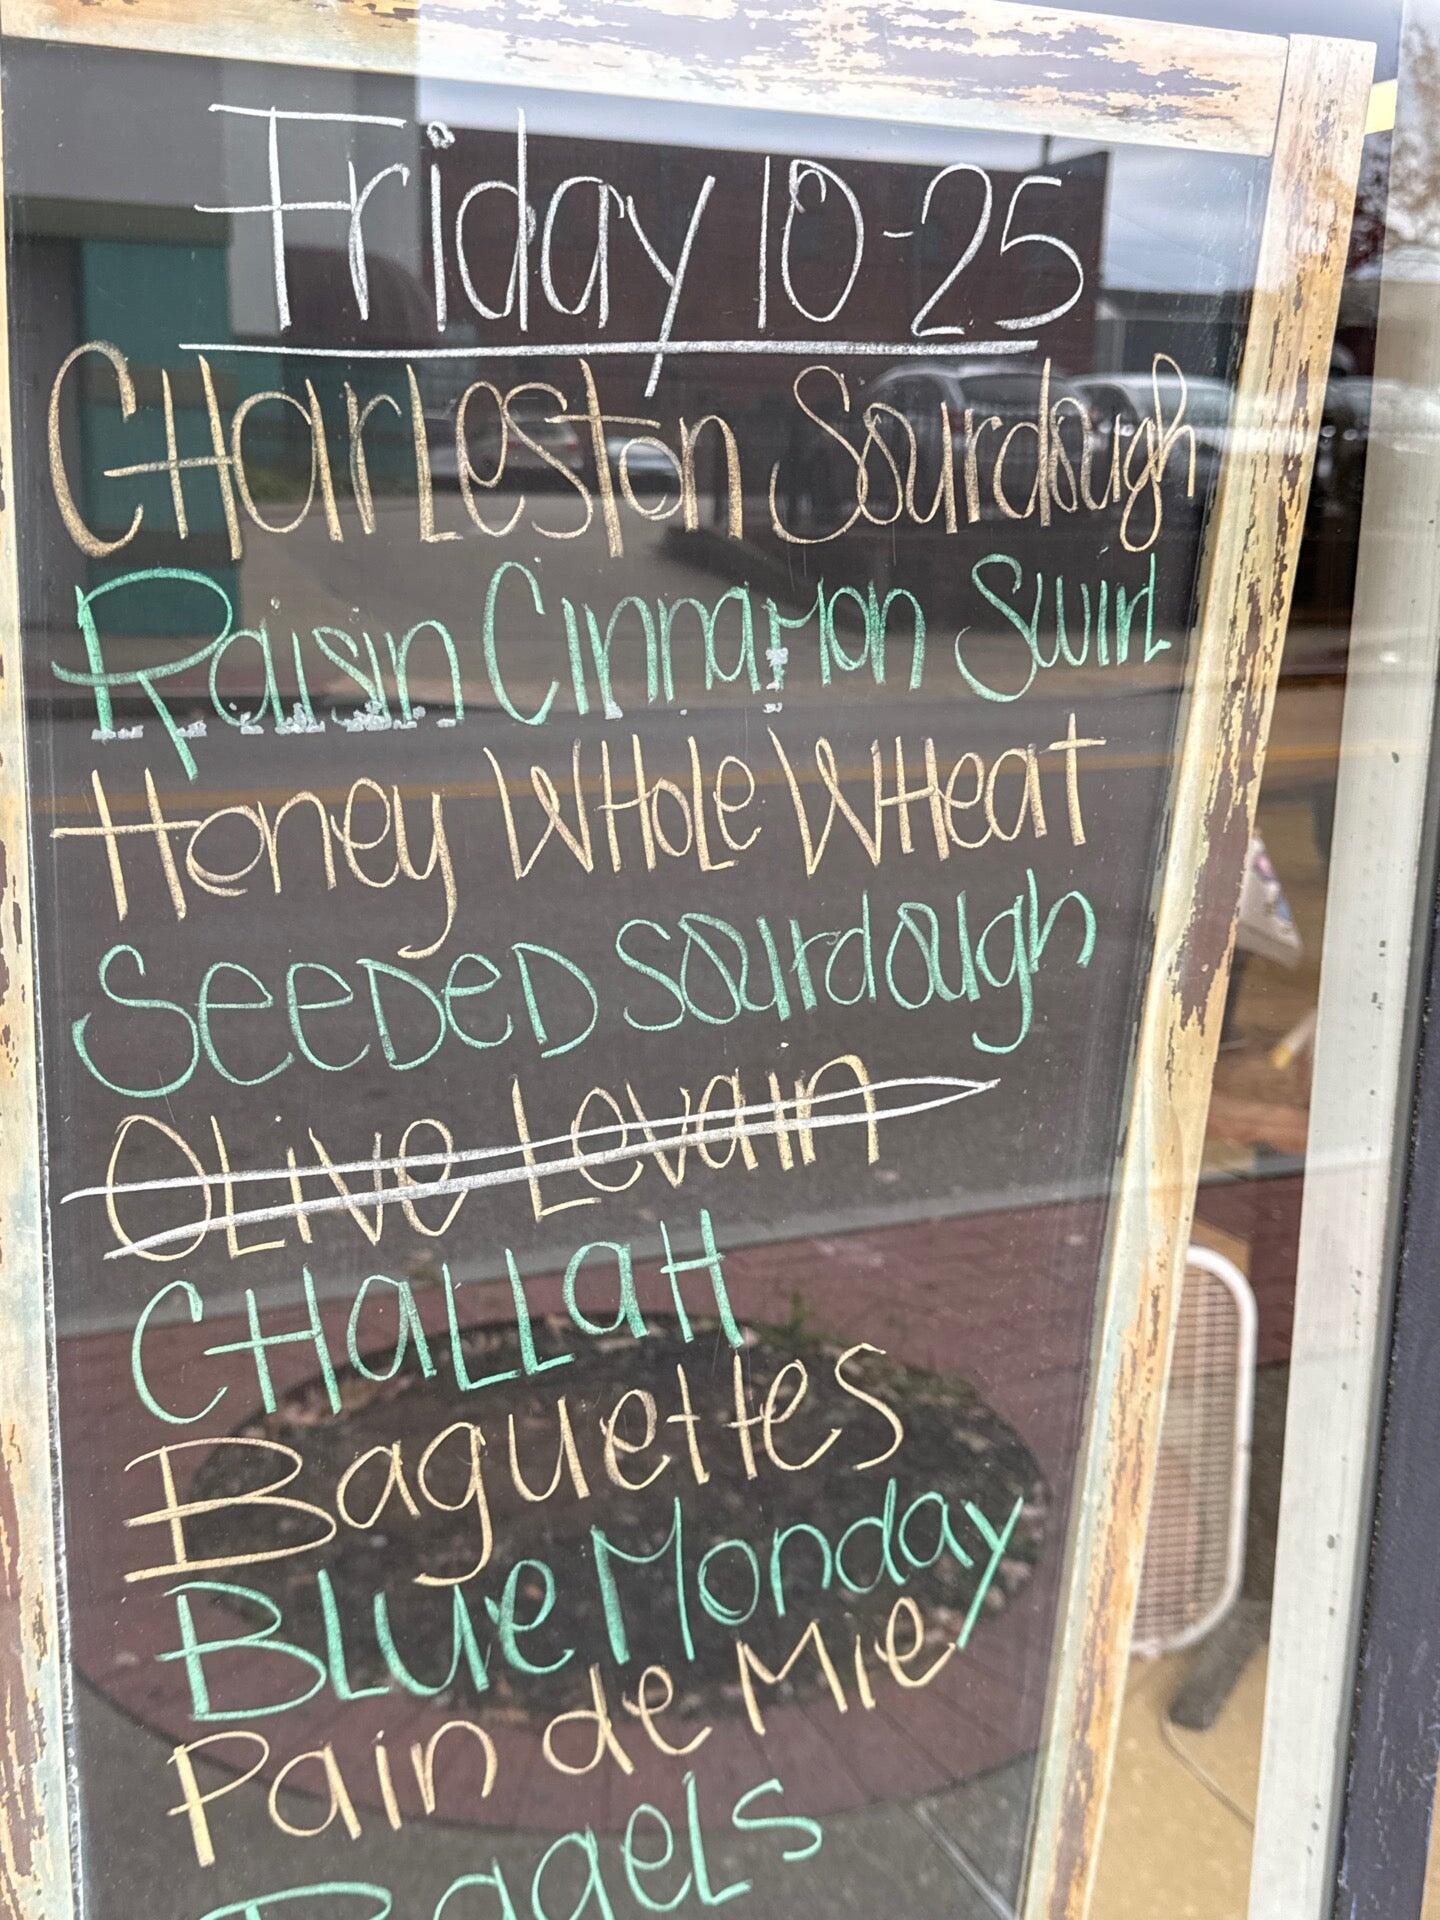 Friday 10-25
CHarLeston Sourdough
Raisin Cinnamon Swirl
Honey WHoLe WHeat
SeeDeD sourdough
OLive Levain
CHaLLaH
Baguettes
BLue Monday
Pain de Mie
Bagels